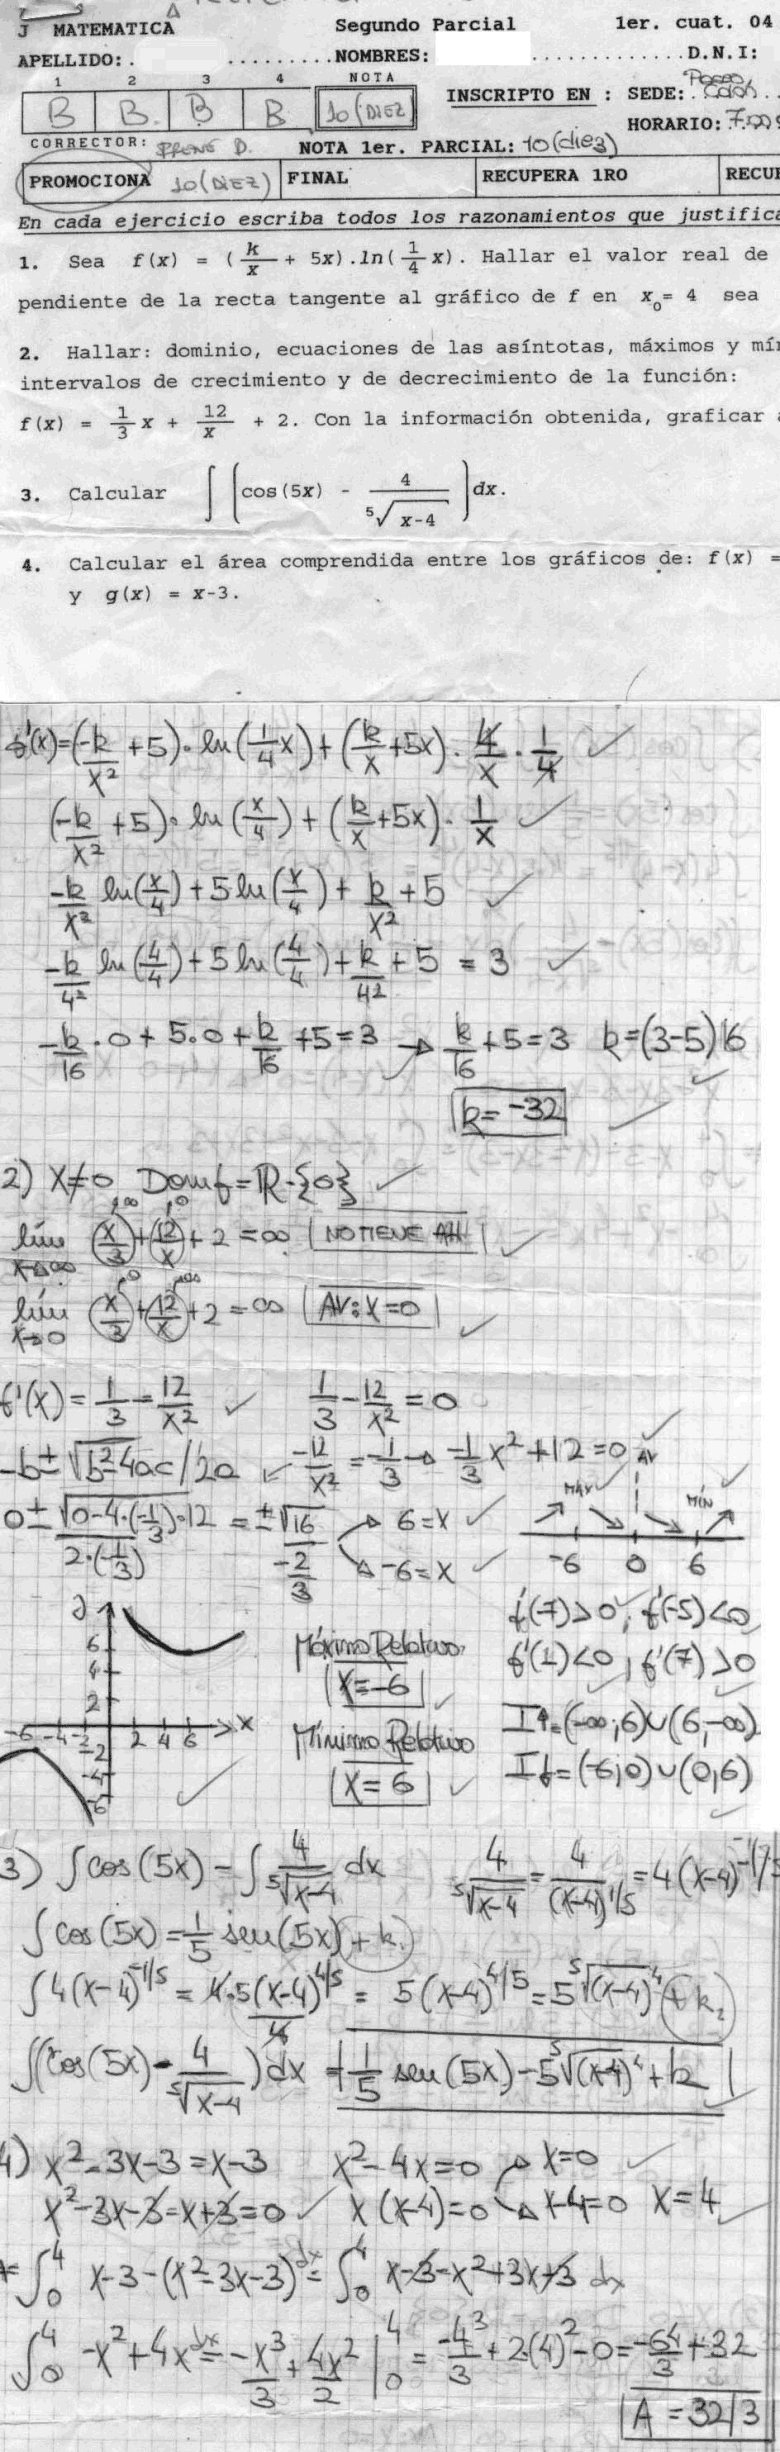 J MATEMATICA Segundo Parcial 1er. cuat. 04
APELLIDO: NOMBRES: D.N.I:
1 2 3 4 NOTA
B B. B B 10 (DIEZ)
INSCRIPTO EN : SEDE: Paseo Colón
HORARIO:
CORRECTOR: NOTA 1er. PARCIAL: 10 (diez)
PROMOCIONA 10 (DIEZ) FINAL RECUPERA 1RO
En cada ejercicio escriba todos los razonamientos que
1. Sea f(x) = (k/x + 5x).ln(1/4 x). Hallar el valor real de
pendiente de la recta tangente al gráfico de f en x₀= 4 sea
2. Hallar: dominio, ecuaciones de las asíntotas, máximos y
intervalos de crecimiento y de decrecimiento de la función:
f(x) = 1/3 x + 12/x + 2. Con la información obtenida, graficar
3. Calcular ∫ (cos(5x) - 4/⁵√(x-4)) dx.
4. Calcular el área comprendida entre los gráficos de: f(x) =
y g(x) = x-3.
f'(x)=(-k/x² + 5)·ln(1/4 x) + (k/x + 5x)·4/x·1/4
(-k/x² + 5)·ln(x/4) + (k/x + 5x)·1/x
-k/x² ln(x/4) + 5 ln(x/4) + k/x² + 5
-k/4² ln(4/4) + 5 ln(4/4) + k/4² + 5 = 3
-k/16·0 + 5·0 + k/16 + 5 = 3 → k/16 + 5 = 3 k=(3-5)16
k= -32
2) x≠0 Dom f = ℝ-{0}
lím x→∞ (x/3)+(12/x)+2 = ∞ NO TIENE AH
lím x→0 (x/3)+(12/x)+2 = ∞ AV: x=0
f'(x) = 1/3 - 12/x² 1/3 - 12/x² = 0
-b±√(b²-4ac)/2a -12/x² = -1/3 → -1/3 x² + 12 = 0
0±√(0-4·(-1/3)·12)/2·(-1/3) = ±√16/(-2/3) 6=x
-6=x
MÁX AV MÍN
-6 0 6
f'(-7)>0, f'(-5)<0
f'(1)<0, f'(7)>0
6 4 2
-6 -4 -2 2 4 6 x
-2 -4 -6
Máximo Relativo
x=-6
Mínimo Relativo
x=6
I↑=(-∞;6)∪(6,-∞)
I↓=(-6;0)∪(0,6)
3) ∫cos(5x) - ∫4/⁵√(x-4) dx 4/⁵√(x-4) = 4/(x-4)^1/5 = 4(x-4)^-1/5
∫cos(5x) = 1/5 sen(5x) + k₁
∫4(x-4)^-1/5 = 4·5(x-4)^4/5 /4 = 5(x-4)^4/5 = 5 ⁵√(x-4)⁴ + k₂
∫(cos(5x) - 4/⁵√(x-4)) dx = 1/5 sen(5x) - 5 ⁵√(x-4)⁴ + k
4) x²-3x-3 = x-3 x²-4x=0 x=0
x²-3x-3-x+3=0 x(x-4)=0 x-4=0 x=4
= ∫₀⁴ x-3-(x²-3x-3) dx = ∫₀⁴ x-3-x²+3x+3 dx
∫₀⁴ -x²+4x dx = -x³/3 + 4x²/2 |₀⁴ = -4³/3 + 2(4)² - 0 = -64/3 + 32
A = 32/3